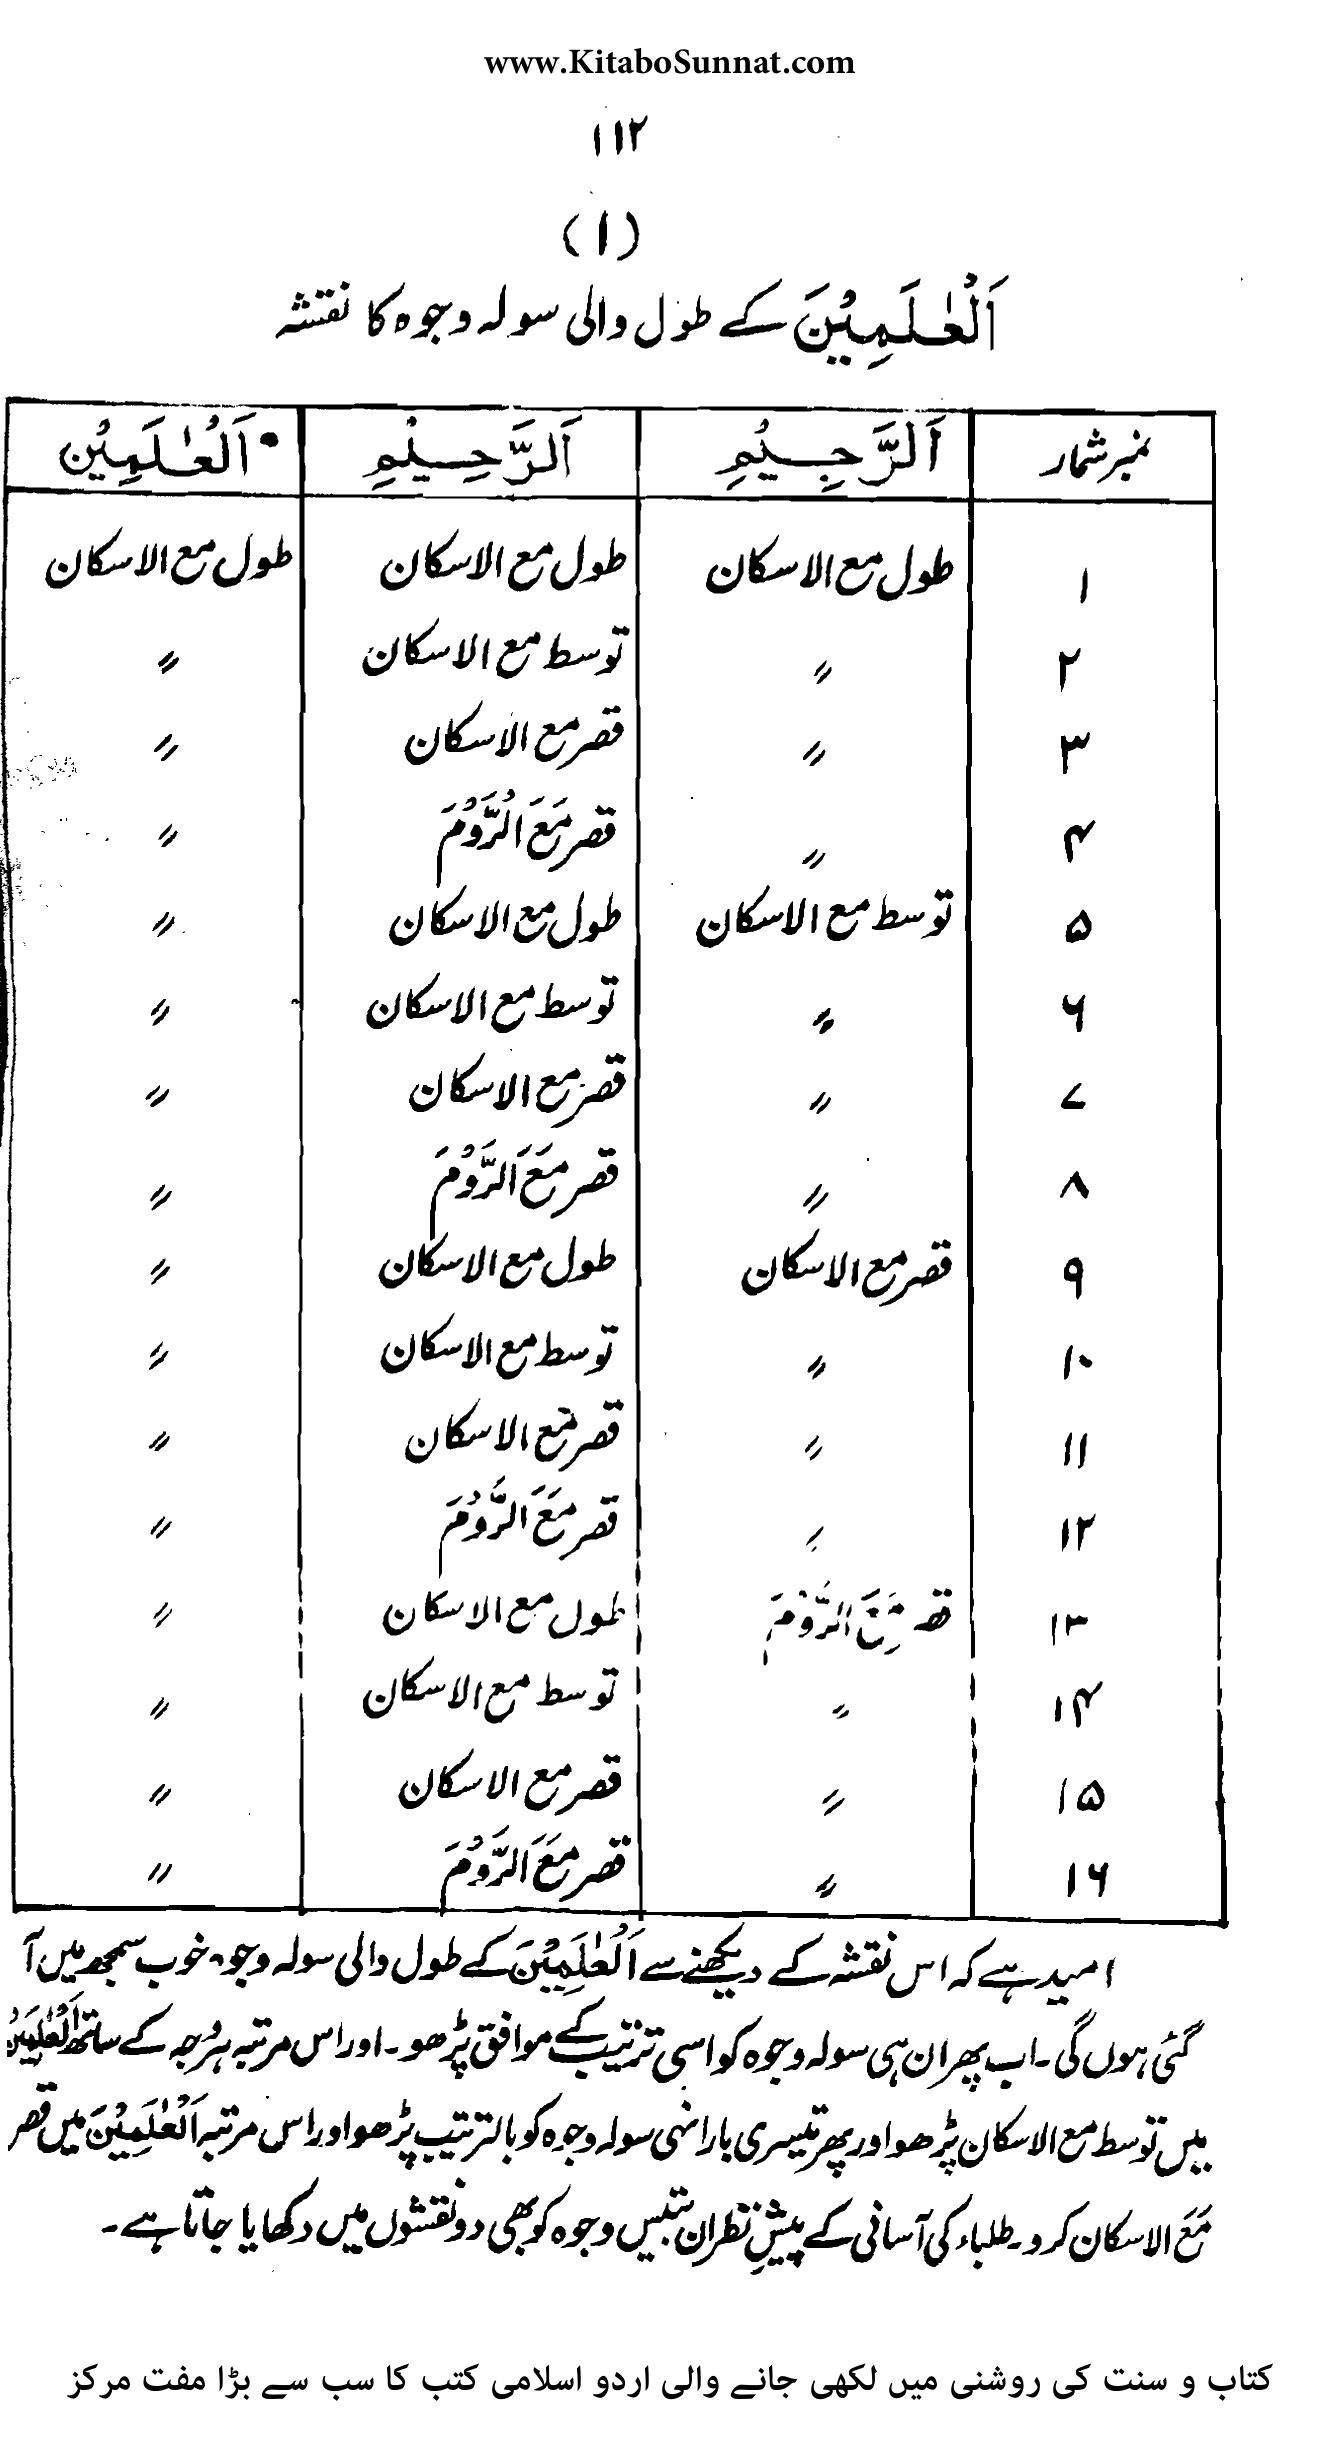 www.KitaboSunnat.com
۱۱۲
(۱)
اَلْعٰلَمِیْنَ کے طول والی سولہ وجوہ کا نقشہ
نمبر شمار اَلرَّجِیْمِ اَلرَّحِیْمِ اَلْعٰلَمِیْن
۱ طول مع الاسکان طول مع الاسکان طول مع الاسکان
۲ 〃 توسط مع الاسکان 〃
۳ 〃 قصر مع الاسکان 〃
۴ 〃 قصر مَعَ الرَّوْمَ 〃
۵ توسط مع الاسکان طول مع الاسکان 〃
۶ 〃 توسط مع الاسکان 〃
۷ 〃 قصر مع الاسکان 〃
۸ 〃 قصر مَعَ الرَّوْمَ 〃
۹ قصر مع الاسکان طول مع الاسکان 〃
۱۰ 〃 توسط مع الاسکان 〃
۱۱ 〃 قصر مع الاسکان 〃
۱۲ 〃 قصر مَعَ الرَّوُمَ 〃
۱۳ قصر مَعَ الرَّوْمَ طول مع الاسکان 〃
۱۴ 〃 توسط مع الاسکان 〃
۱۵ 〃 قصر مع الاسکان 〃
۱۶ 〃 قصر مَعَ الرَّوْمَ 〃
امید ہے کہ اس نقشہ کے دیکھنے سے اَلْعٰلَمِیْنَ کے طول والی سولہ وجوہ خوب سمجھ میں آ
گئی ہوں گی۔ اب پھر ان ہی سولہ وجوہ کو اسی ترتیب کے موافق پڑھو۔ اور اس مرتبہ ہر وجہ کے ساتھ اَلْعٰلَمِیْنَ
میں توسط مع الاسکان پڑھو اور پھر تیسری بار انہی سولہ وجوہ کو بالترتیب پڑھو اور اس مرتبہ اَلْعٰلَمِیْنَ میں قصر
مَعَ الاسکان کرو۔ طلباء کی آسانی کے پیشِ نظر ان تیس وجوہ کو بھی دو نقشوں میں دکھایا جاتا ہے۔
کتاب و سنت کی روشنی میں لکھی جانے والی اردو اسلامی کتب کا سب سے بڑا مفت مرکز